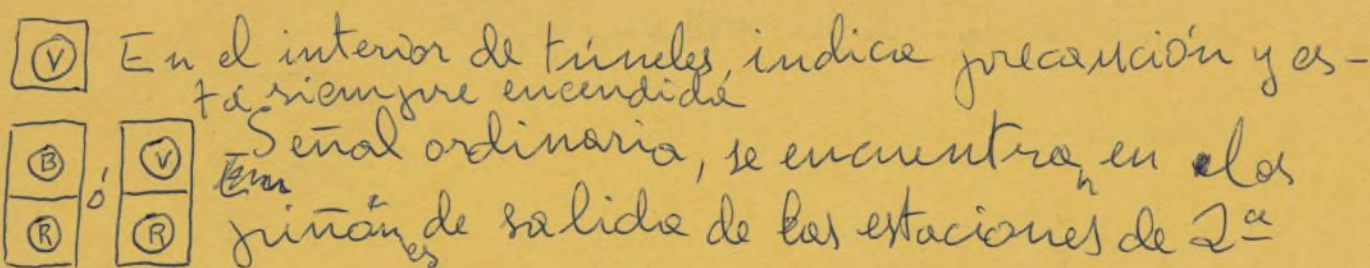 V En el interior de túneles, indica precaución y es-
ta siempre encendida
B ó V Señal ordinaria, se encuentran en los
R R piñones de salida de las estaciones de 2ª